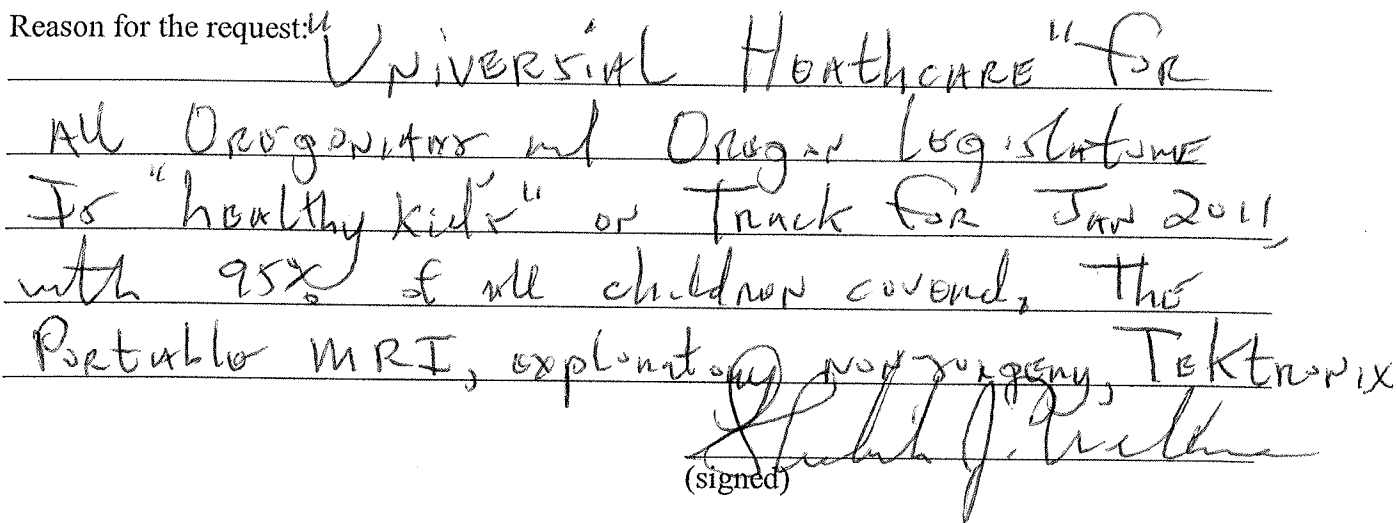 Reason for the request: "Universial Heathcare" for
All Oregonians and Oregon Legislature
Is "healthy kid's" on Track for Jan 2011,
with 95% of all children covered, The
Portable MRI, exploratory non surgery, Tektronix
(signed)